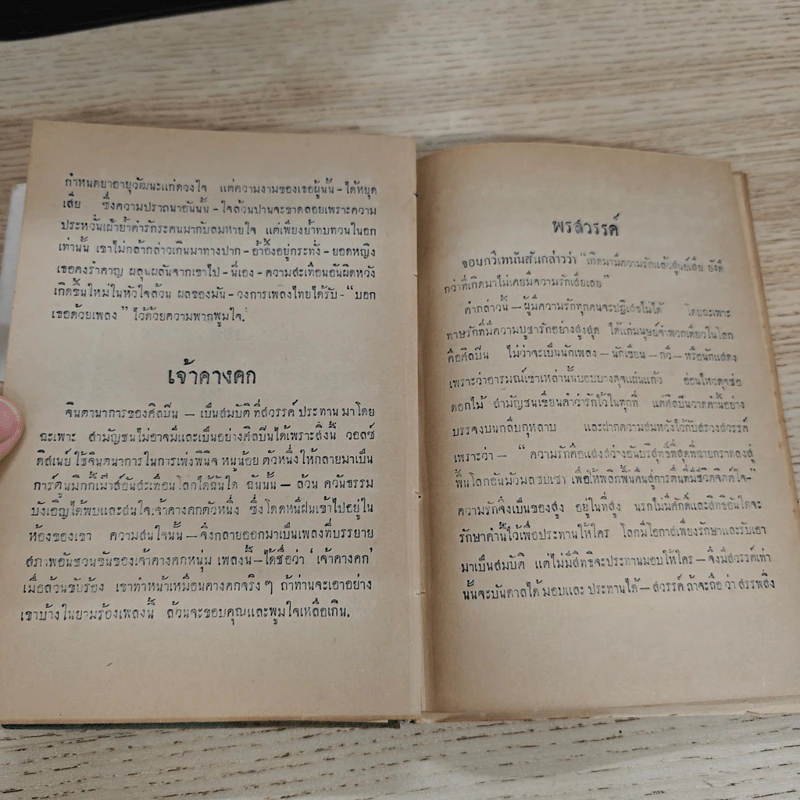 กำหนดยาอายุวัฒนะแก่ดวงใจ แต่ความงามของเธอผู้นั้น - ได้หยุด
เสีย ซึ่งความปราถนาอันนั้น - ใจล้วนปานจะขาดลอยเพราะความ
ประหวั่นเฝ้าย้ำคำรักระคนมากับลมหายใจ แต่เพียงย้ำทบทวนในอก
เท่านั้น เขาไม่กล้ากล่าวเกินมาทางปาก - อ้ำอึ้งอยู่กระทั่ง - ยอดหญิง
เธอคงรำคาญ ผลุนผลันจากเขาไป - นี่เอง - ความสะเทือนอันผิดหวัง
เกิดขึ้นใหม่ในหัวใจล้วน ผลของมัน - วงการเพลงไทยได้รับ - " บอก
เธอด้วยเพลง " ไว้ด้วยความพากพูมใจ.
เจ้าคางคก
จินตานาการของศิลปิน — เป็นสมบัติ ที่สวรรค์ ประทาน มาโดย
ฉะเพาะ สามัญชนไม่อาจมีและเป็นอย่างศิลปินได้เพราะสิ่งนี้ วอลซ์
ดิสเนย์ ใช้จินตนาการในการเพ่งพินิจ หนูน้อย ตัวหนึ่ง ให้กลายมาเป็น
การ์ตูนมิกกี้เม๊าส์อันสะเทือนโลกได้ฉันใด ฉันนั้น — ล้วน ควันธรรม
บังเอิญได้พบและสนใจเจ้าคางคกตัวหนึ่ง ซึ่งโดดหนีฝนเข้าไปอยู่ใน
ห้องของเขา ความสนใจนั้น — จึงกลายออกมาเป็นเพลงที่บรรยาย
สภาพอันชวนขันของเจ้าคางคกหนุ่ม เพลงนี้ — ได้ชื่อว่า ' เจ้าคางคก'
เมื่อล้วนขับร้อง เขาทำหน้าเหมือนคางคกจริง ๆ ถ้าท่านจะเอาอย่าง
เขาบ้างในยามร้องเพลงนี้ ล้วนจะขอบคุณและพูมใจเหลือเกิน.
พรสวรรค์
จอมกวีเทนนิสันกล่าวว่า "เกิดมามีความรักแล้วสูญเสีย ยังดี
กว่าที่เกิดมาไม่เคยมีความรักเสียเลย"
คำกล่าวนี้ — ผู้มีความรักทุกคนจะปฏิเสธไม่ได้ โดยฉะเพาะ
ทาษรักที่มีความบูชารักอย่างสูงสุด ได้แก่มนุษย์จำพวกเดียวในโลก
คือศิลปิน ไม่ว่าจะเป็นนักเพลง — นักเขียน — กวี — หรือนักแสดง
เพราะว่าอารมณ์เขาเหล่านั้นบอบบางดุจแผ่นแก้ว อ่อนไหวดุจช่อ
ดอกไม้ สามัญชนเขียนคำว่ารักไว้ในทุกที่ แต่ศิลปินวาดคำนี้อย่าง
บรรจงบนกลีบกุหลาบ และฝากความสมหวังไว้กับสรวงสวรรค์
เพราะว่า — " ความรักคือแสงสว่างอันบริสุทธิ์ที่สุดที่ฉายกราดลงสู่
พื้นโลกอันมัวมลซบเซา เพื่อให้พลิกฟื้นคืนสู่การตื่นที่มีชีวิตจิตต์ใจ-"
ความรักจึงเป็นของสูง อยู่ในที่สูง นรกไม่มีศักดิ์และสิทธิอันใดจะ
รักษาค้ำนี้ไว้เพื่อประทานให้ใคร โลกมีโอกาสเพียงรักษาและรับเอา
มาเป็นสมบัติ แต่ไม่มีสิทธิจะประทานมอบให้ใคร — จึงมีสวรรค์เท่า
นั้นจะบันดาลได้ มอบและ ประทานได้ — สวรรค์ ถ้าจะถือ ว่า สรรพสิ่ง